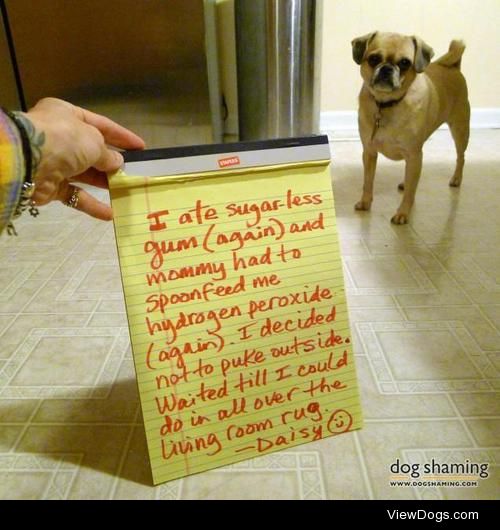 STAPLES
I ate sugar-less
gum (again) and
mommy had to
spoonfeed me
hydrogen peroxide
(again). I decided
not to puke outside.
Waited till I could
do in all over the
living room rug.
—Daisy ☺
dog shaming
WWW.DOGSHAMING.COM
ViewDogs.com